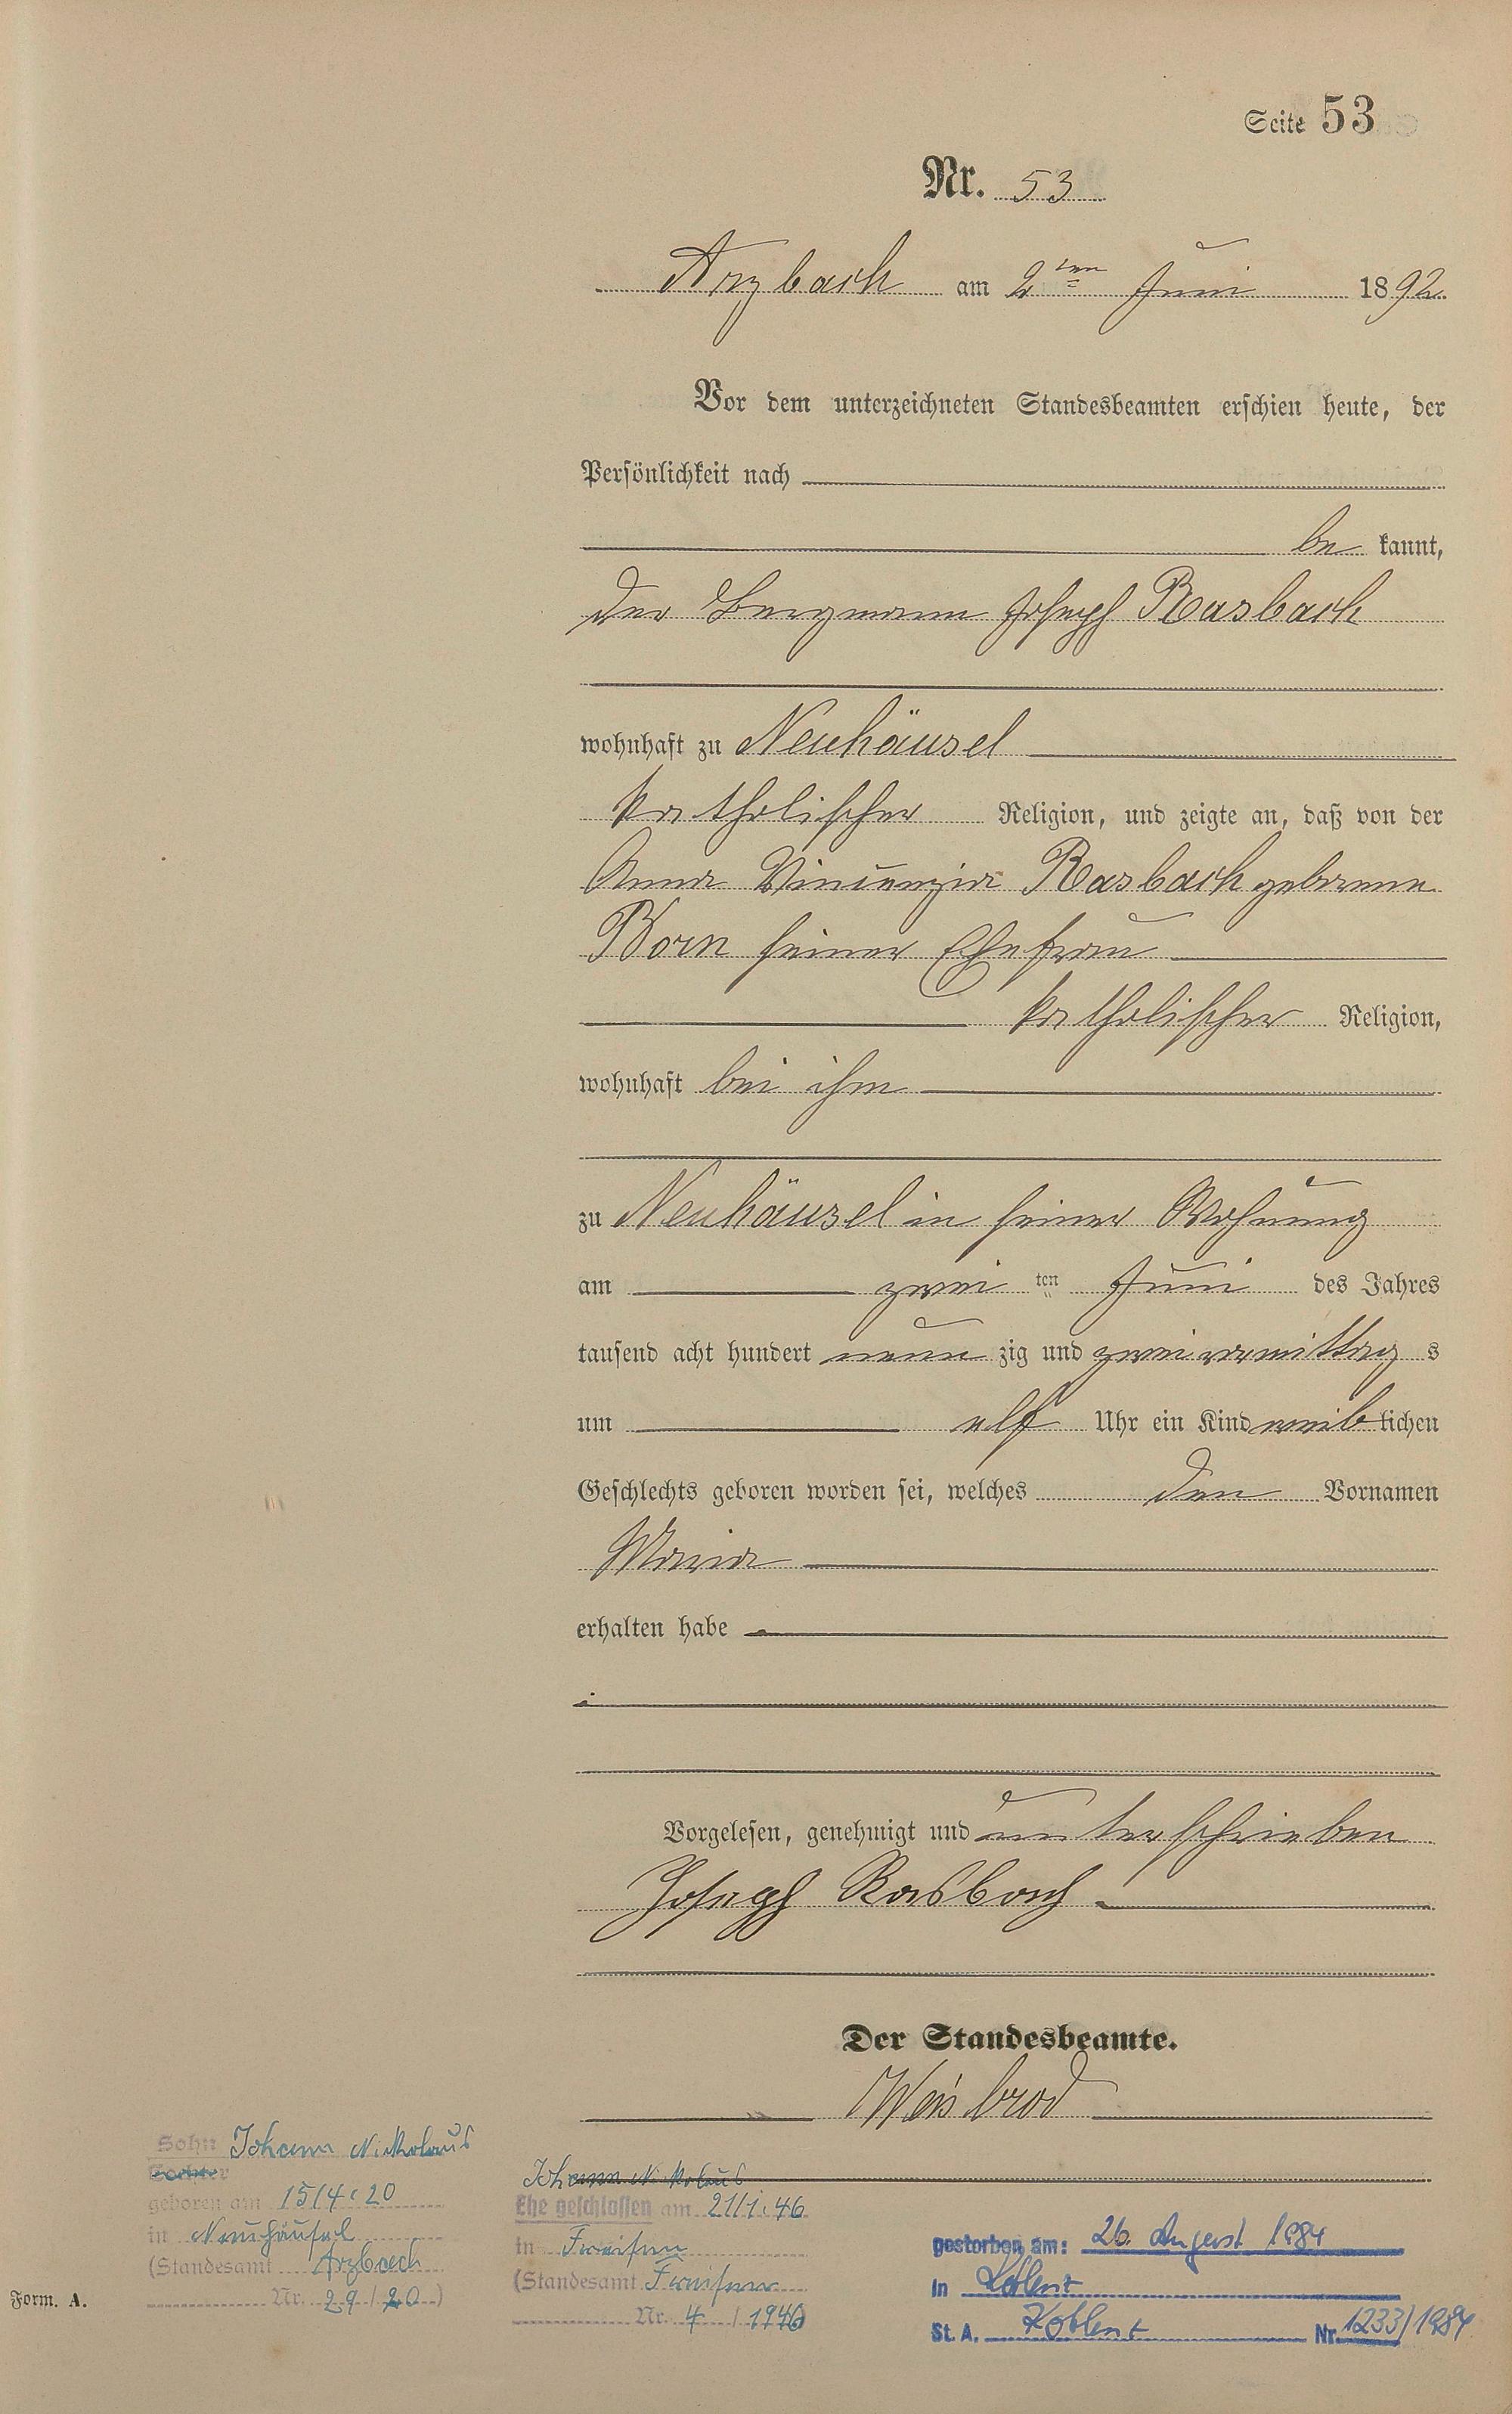 Seite 53
Nr. 53
Arzbach am 2ten Juni 1892.
Vor dem unterzeichneten Standesbeamten erschien heute, der
Persönlichkeit nach
be kannt,
der Bergmann Joseph Rasbach
wohnhaft zu Neuhäusel
katholischer Religion, und zeigte an, daß von der
Anna Vincenzia Rasbach geborene
Born seiner Ehefrau
katholischer Religion,
wohnhaft bei ihm
zu Neuhäusel in seiner Wohnung
am zwei ten Juni des Jahres
tausend acht hundert neun zig und zwei vormittag s
um elf Uhr ein Kind weib lichen
Geschlechts geboren worden sei, welches den Vornamen
Maria
erhalten habe
Vorgelesen, genehmigt und unterschrieben
Joseph Rasbach
Der Standesbeamte.
Weisbrod
Sohn Johann Nikolaus
Tochter
geboren am 15/4.20
in Neuhäusel
(Standesamt Arzbach
Nr. 29/20)
Johann Nikolaus
Ehe geschlossen am 21/1.46
in
(Standesamt
Nr. 4/1946
gestorben am: 26. August 1984
in Koblenz
St. A. Koblenz Nr. 1233/1984
Form. A.